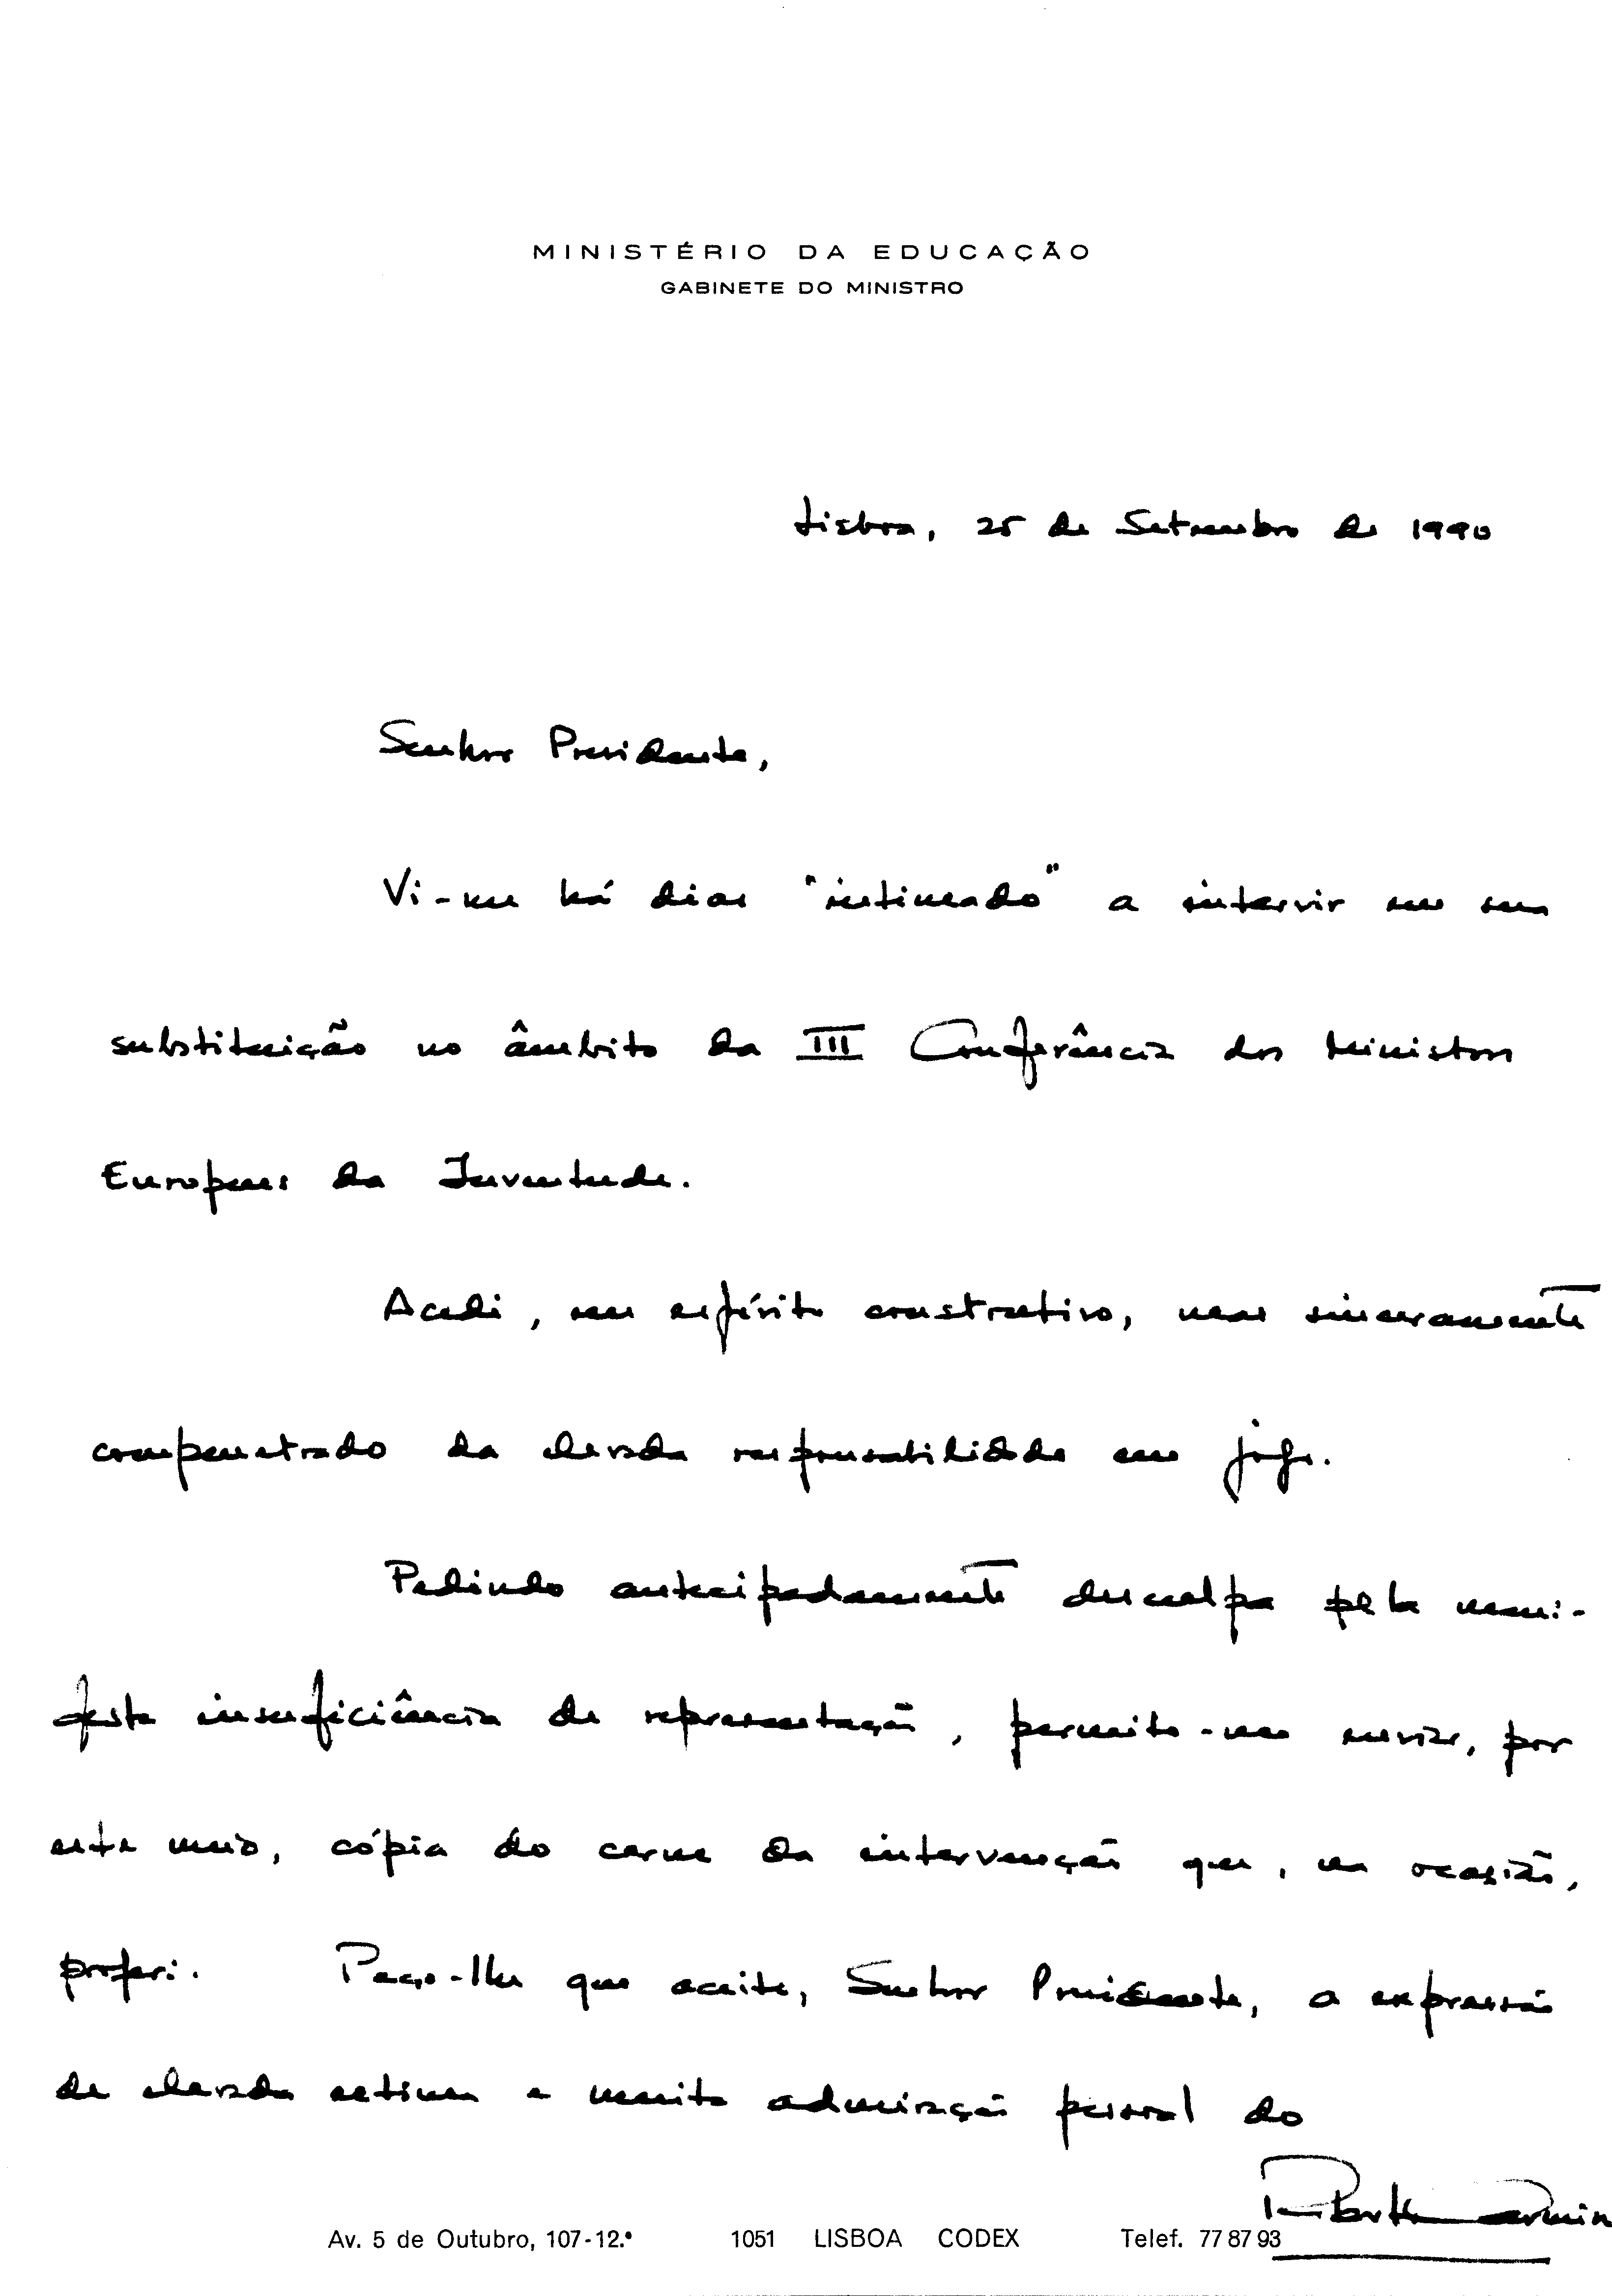 MINISTÉRIO DA EDUCAÇÃO
GABINETE DO MINISTRO
Lisboa, 25 de Setembro de 1990
Senhor Presidente,
Vi-me há dias "intimado" a intervir em sua
substituição no âmbito da III Conferência dos Ministros
Europeus da Juventude.
Acedi, em espírito construtivo, mas sinceramente
compenetrado da elevada responsabilidade em jogo.
Pedindo antecipadamente desculpa pela mani-
festa insuficiência de representação, permito-me enviar, por
este meio, cópia do cerne da intervenção que, na ocasião,
proferi. Peço-lhe que aceite, Senhor Presidente, a expressão
de elevada estima e muita admiração pessoal do
Av. 5 de Outubro, 107-12.º 1051 LISBOA CODEX Telef. 77 87 93